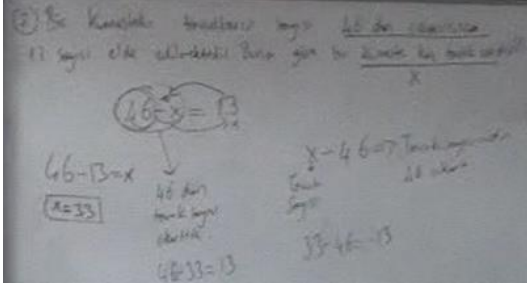 ② Bir Kümesteki tavukların sayısı 46 dan çıkarılınca
13 sayısı elde edilmektedir. Buna göre bu kümeste kaç tavuk vardır?
x
46-x=13
46-13=x
x=33
46 dan
tavuk sayısı
46-33=13
x-46=> Tavuk sayısından
46 çıkar
Tavuk
Sayısı
33-46=-13